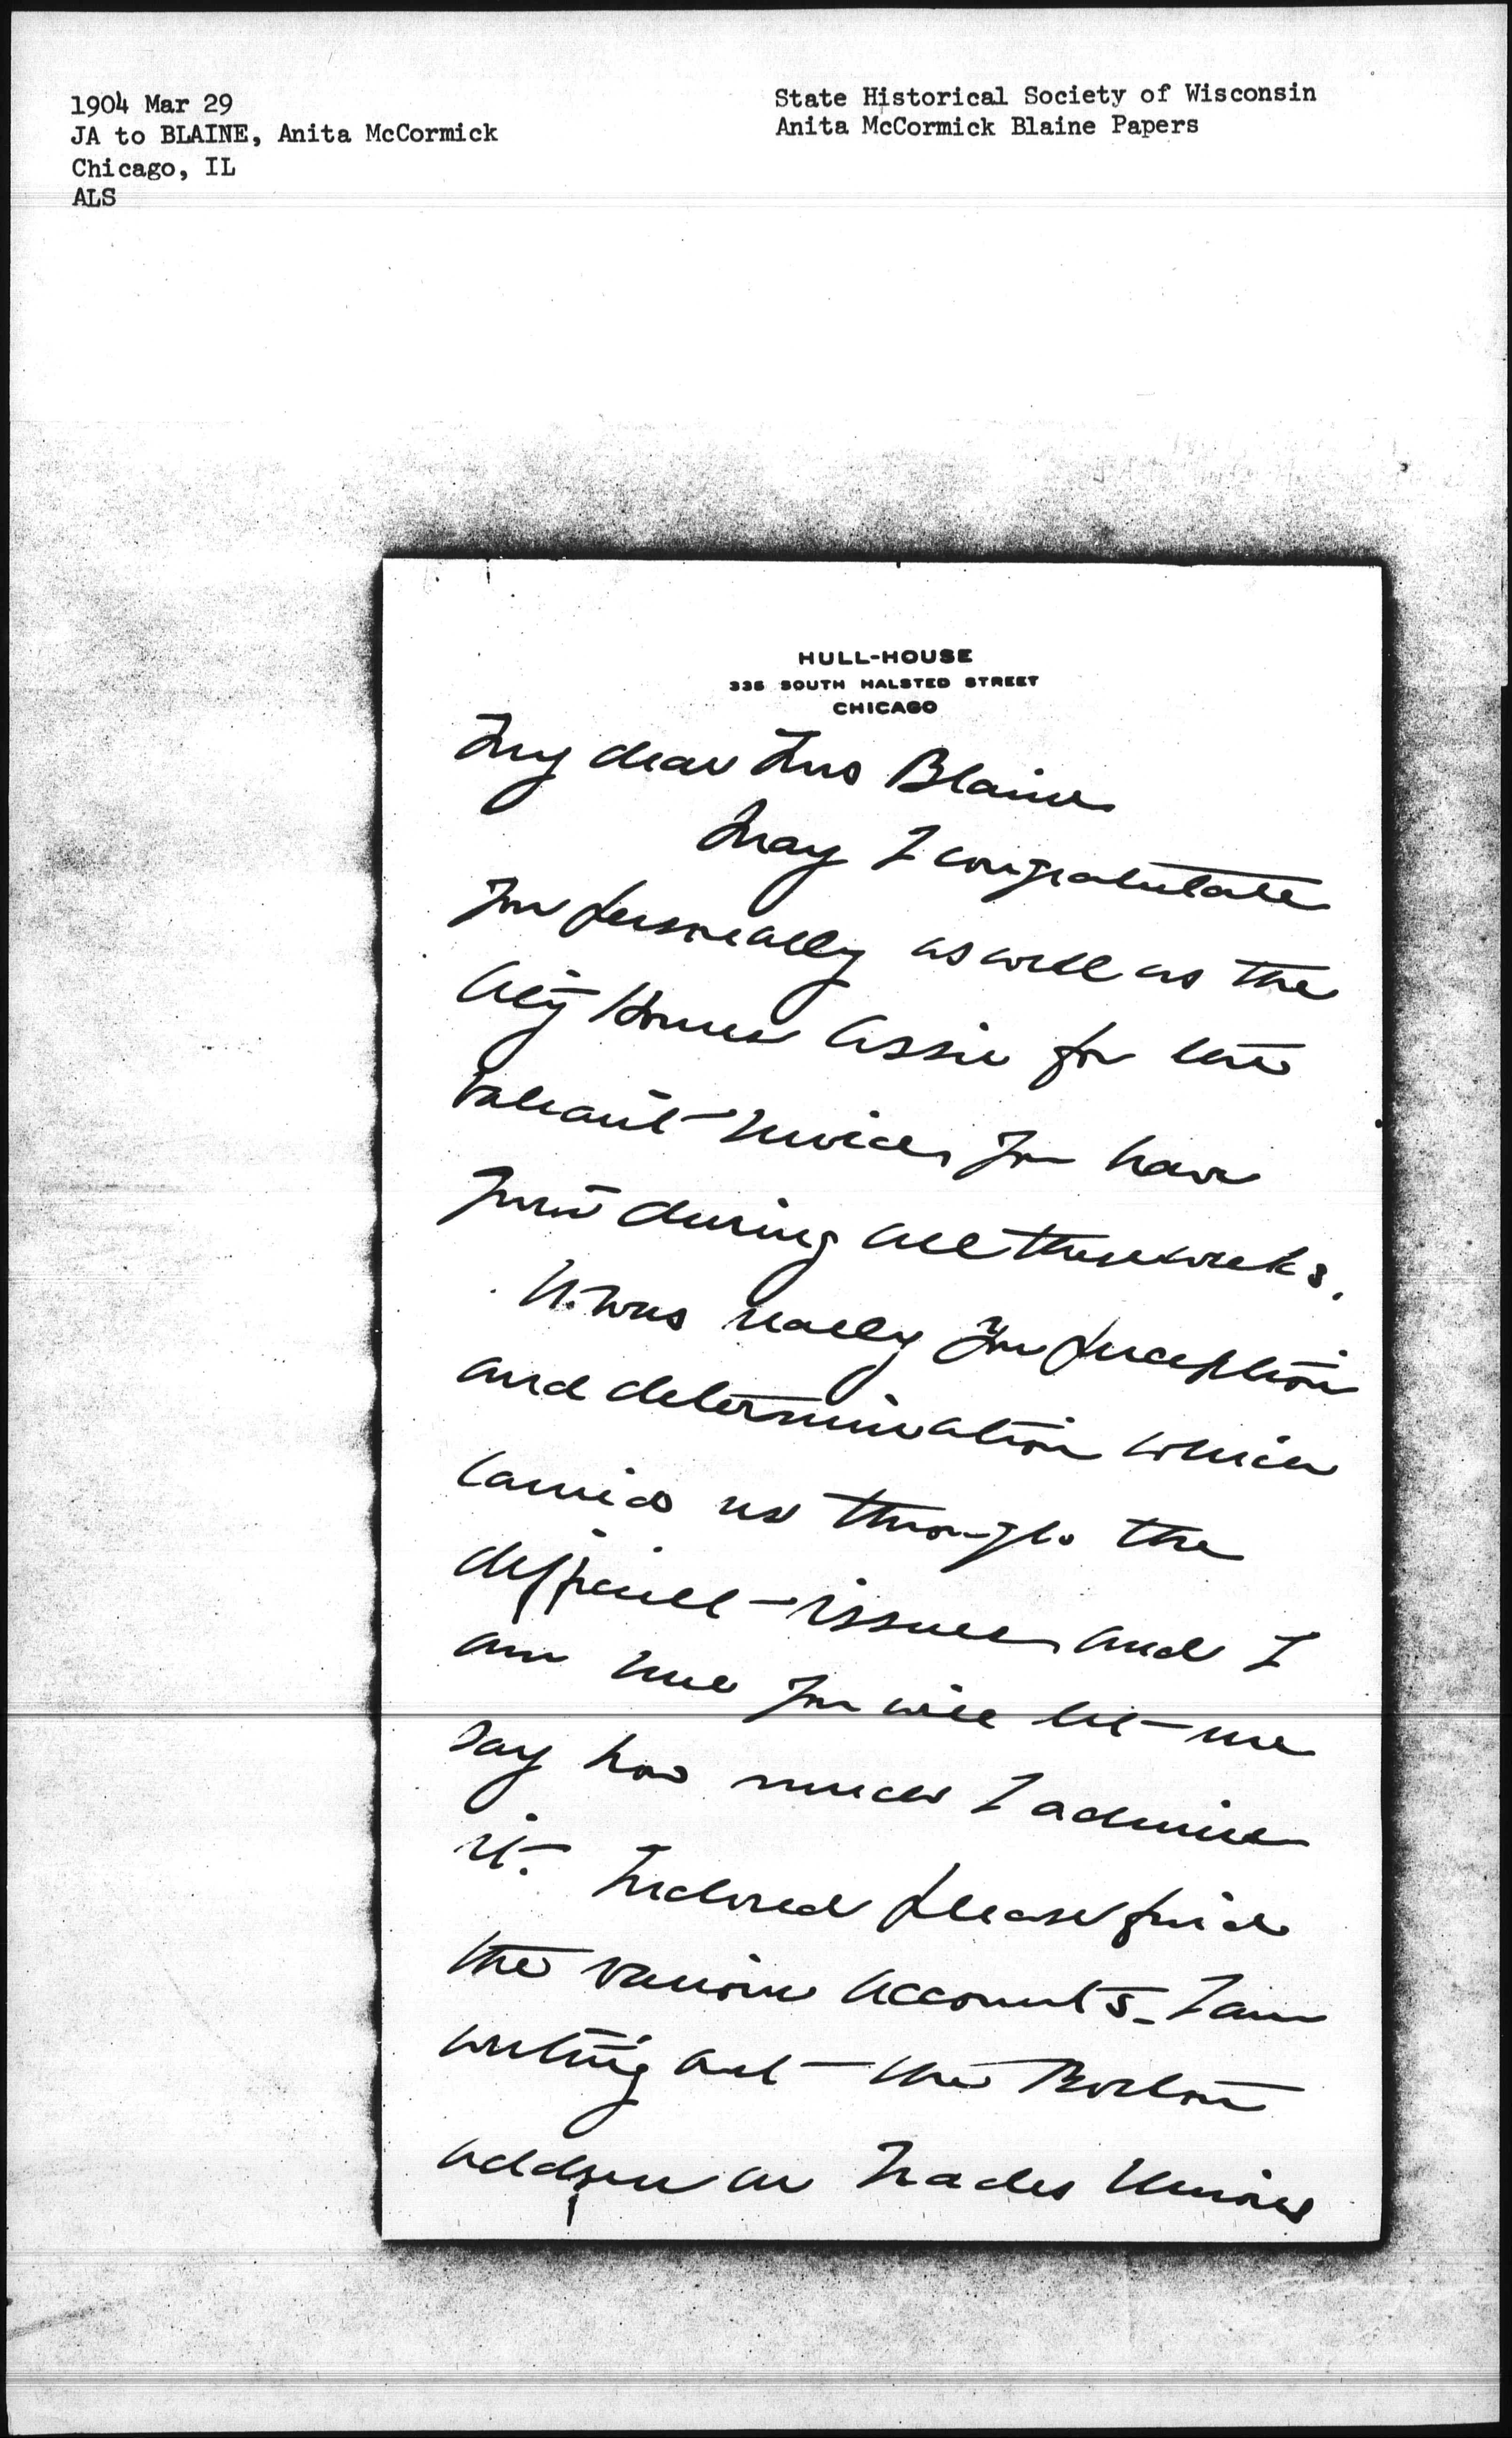 1904 Mar 29
JA to BLAINE, Anita McCormick
Chicago, IL
ALS
State Historical Society of Wisconsin
Anita McCormick Blaine Papers
HULL-HOUSE
335 SOUTH HALSTED STREET
CHICAGO
My dear Mrs Blaine
May I congratulate
you personally as well as the
City Homes Assn for the
valiant services you have
given during all these weeks.
It was really your perception
and determination which
carried us through the
difficult issues and I
am sure you will let me
say how much I admire
it. Inclosed please find
the various accounts. I am
writing out the Boston
address on Trades Unions